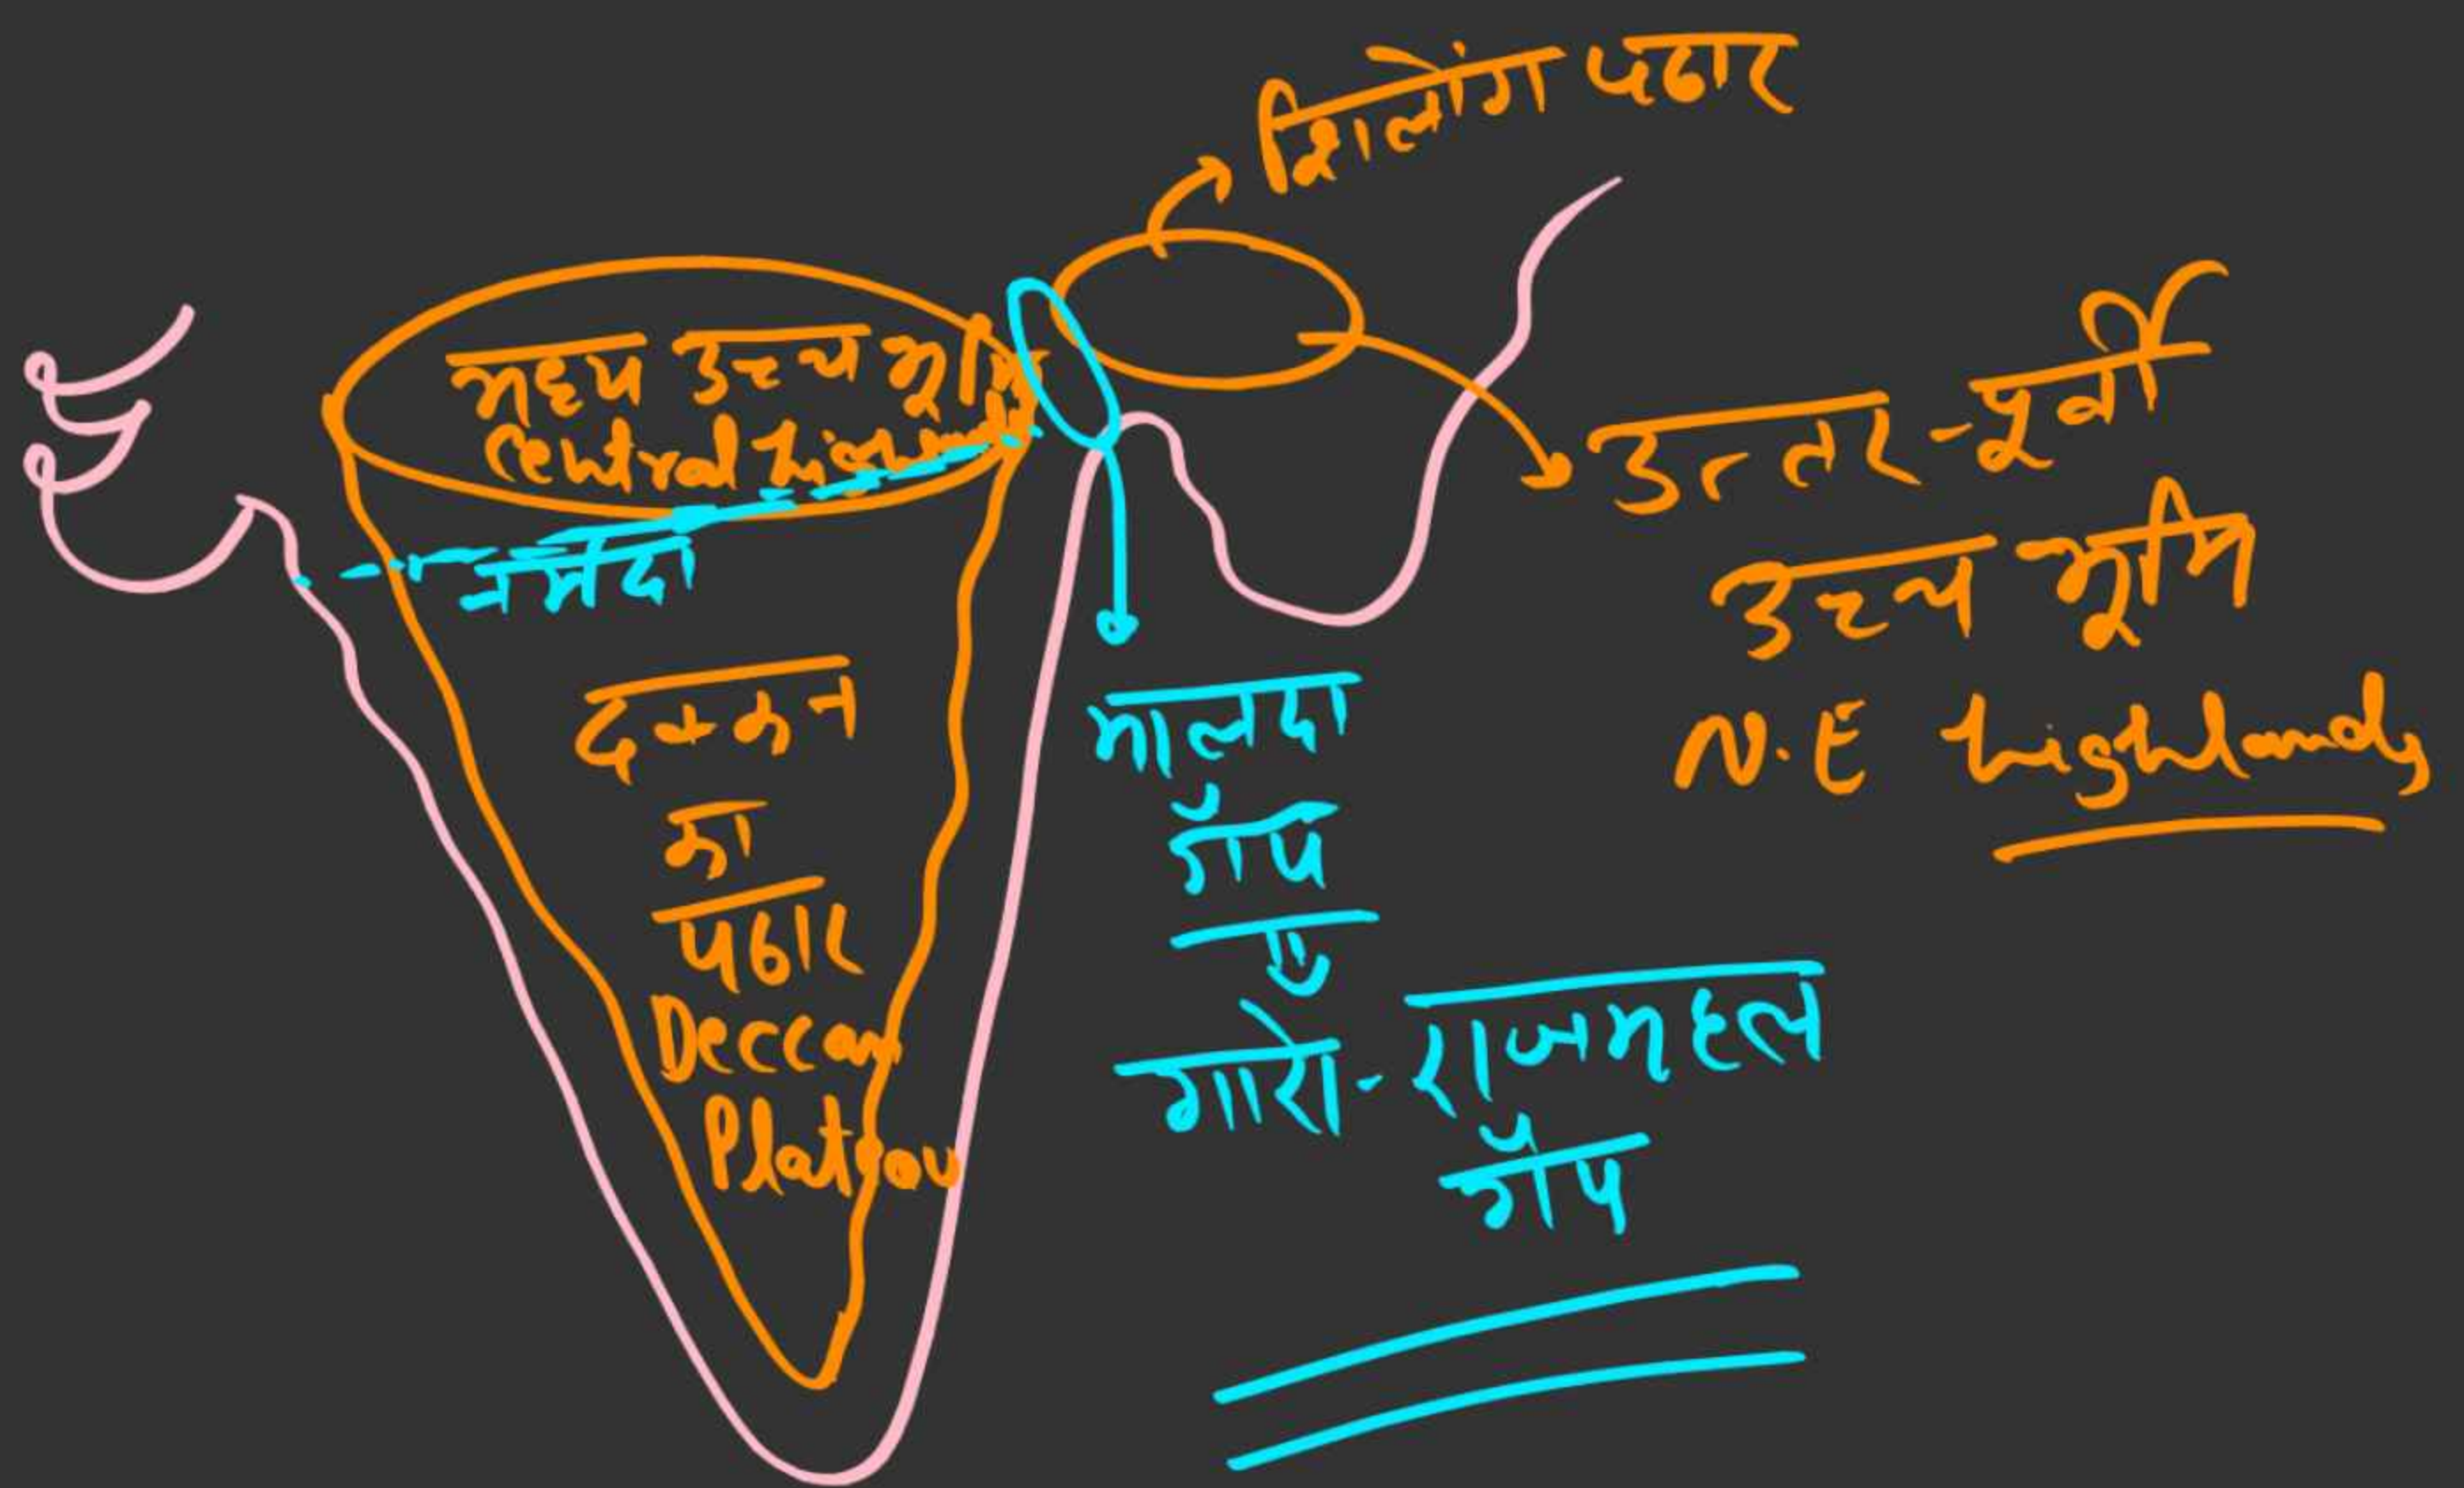 शिलोंग पठार
मध्य उच्च भूमि
Central highland
नर्मदा
दक्कन
का
पठार
Deccan
Plateau
मालदा
गॅाप
या
गारो-राजमहल
गॅाप
उत्तर-पूर्वी
उच्च भूमि
N.E highlands